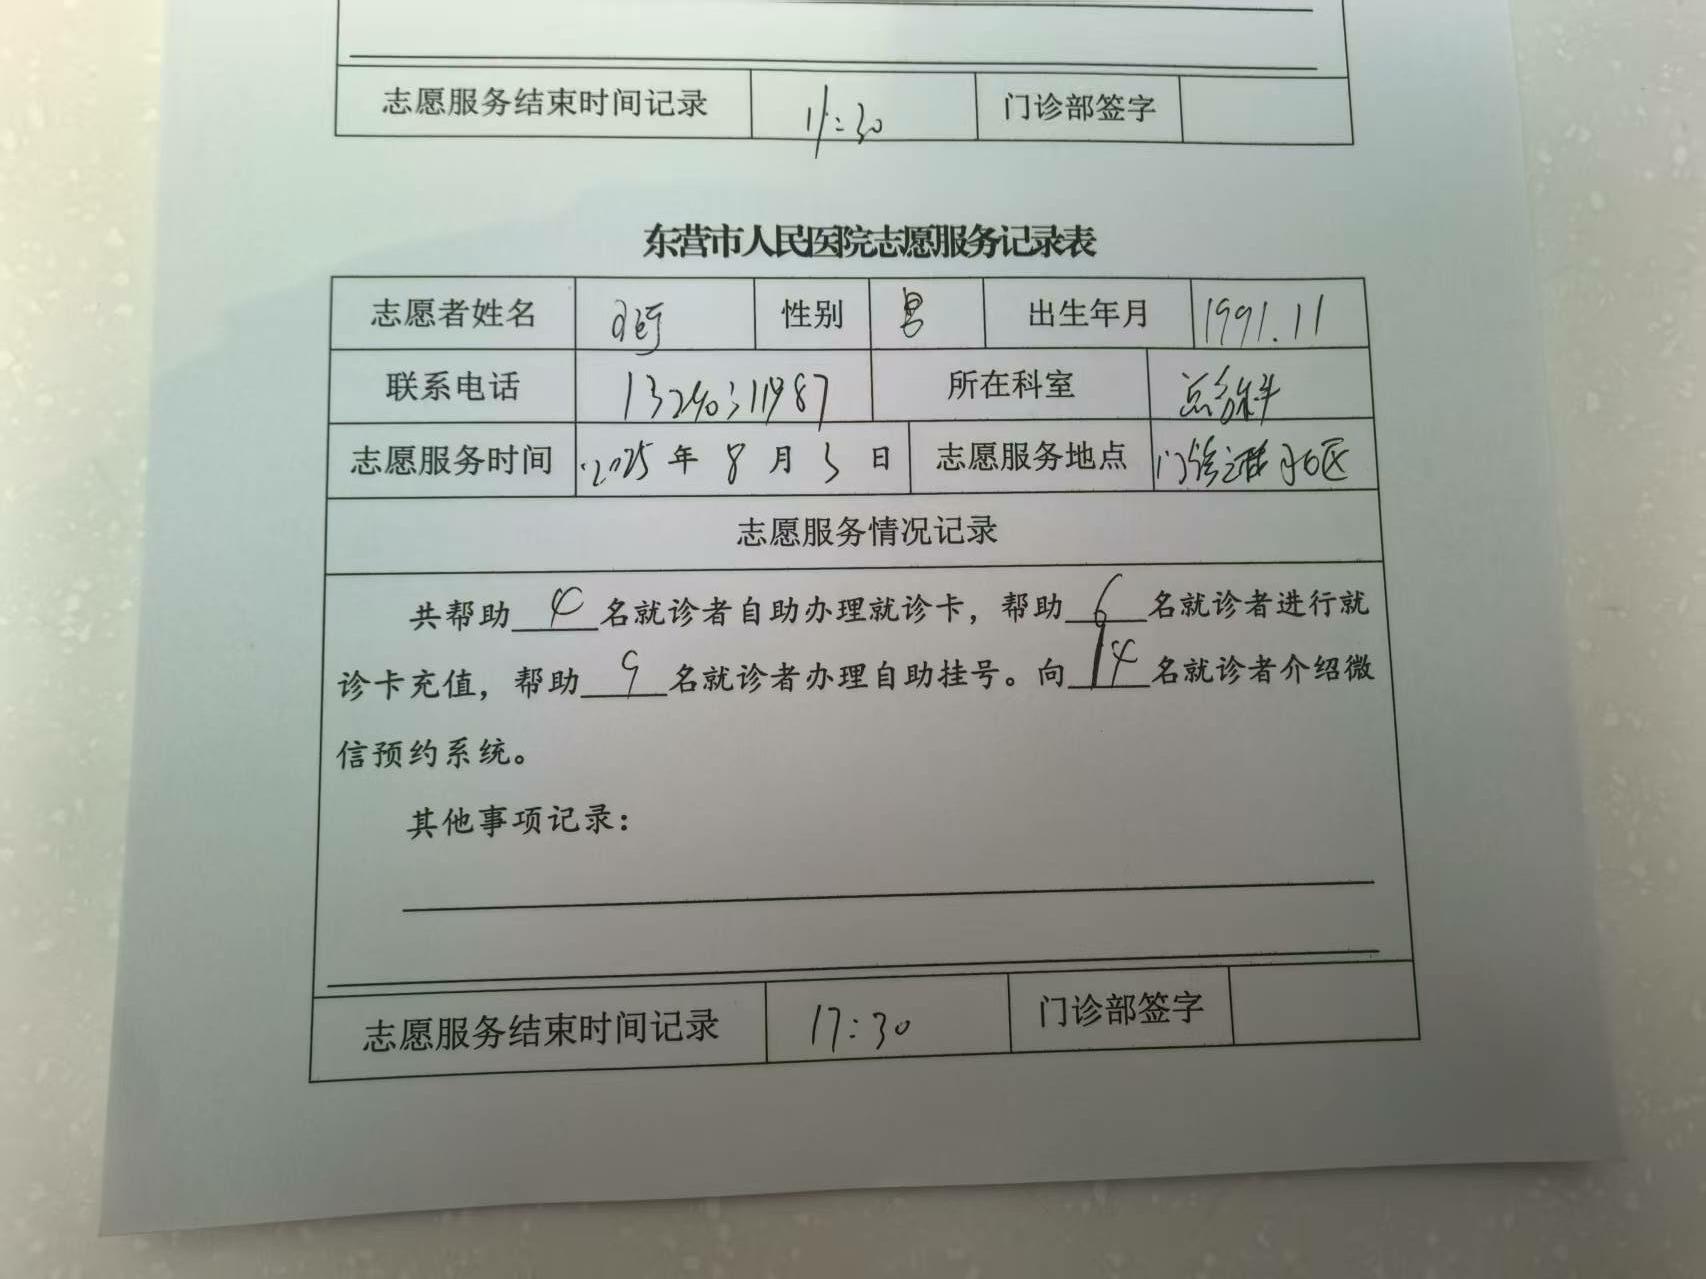 志愿服务结束时间记录 11:30 门诊部签字
东营市人民医院志愿服务记录表
志愿者姓名 性别 男 出生年月 1991.11
联系电话 所在科室 总务科
志愿服务时间 2025年8月3日 志愿服务地点
志愿服务情况记录
共帮助4名就诊者自助办理就诊卡，帮助6名就诊者进行就
诊卡充值，帮助9名就诊者办理自助挂号。向14名就诊者介绍微
信预约系统。
其他事项记录：
志愿服务结束时间记录 17:30 门诊部签字